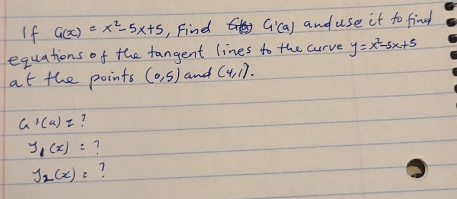 If G(x) = x²-5x+5, Find G'(a) and use it to find
equations of the tangent lines to the curve y=x²-5x+5
at the points (0,5) and (4,1).
G'(a) = ?
y₁(x) = ?
y₂(x) = ?